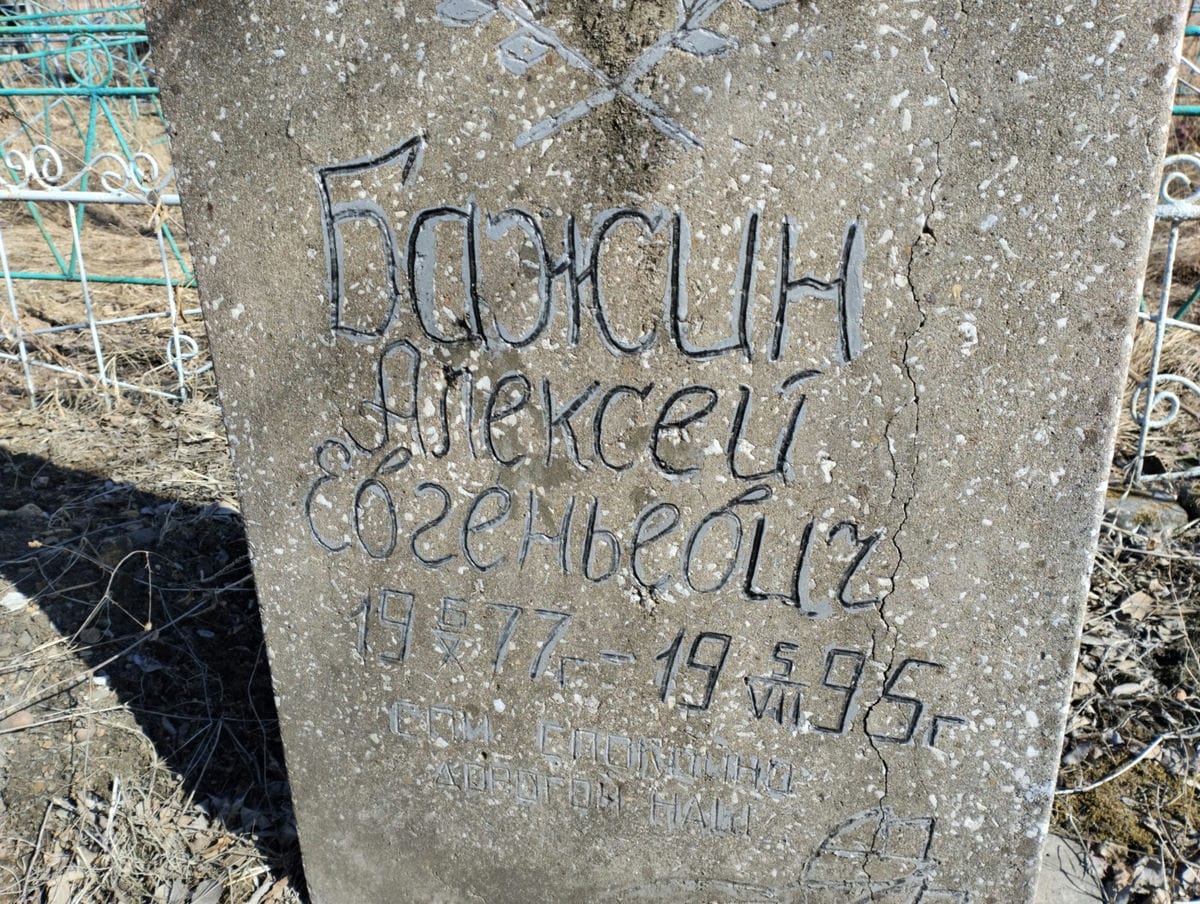 Бажин
Алексей
Евгеньевич
19 6/X 77 г. - 19 5/VII 95 г
СПИ СПОКОЙНО
ДОРОГОЙ НАШ